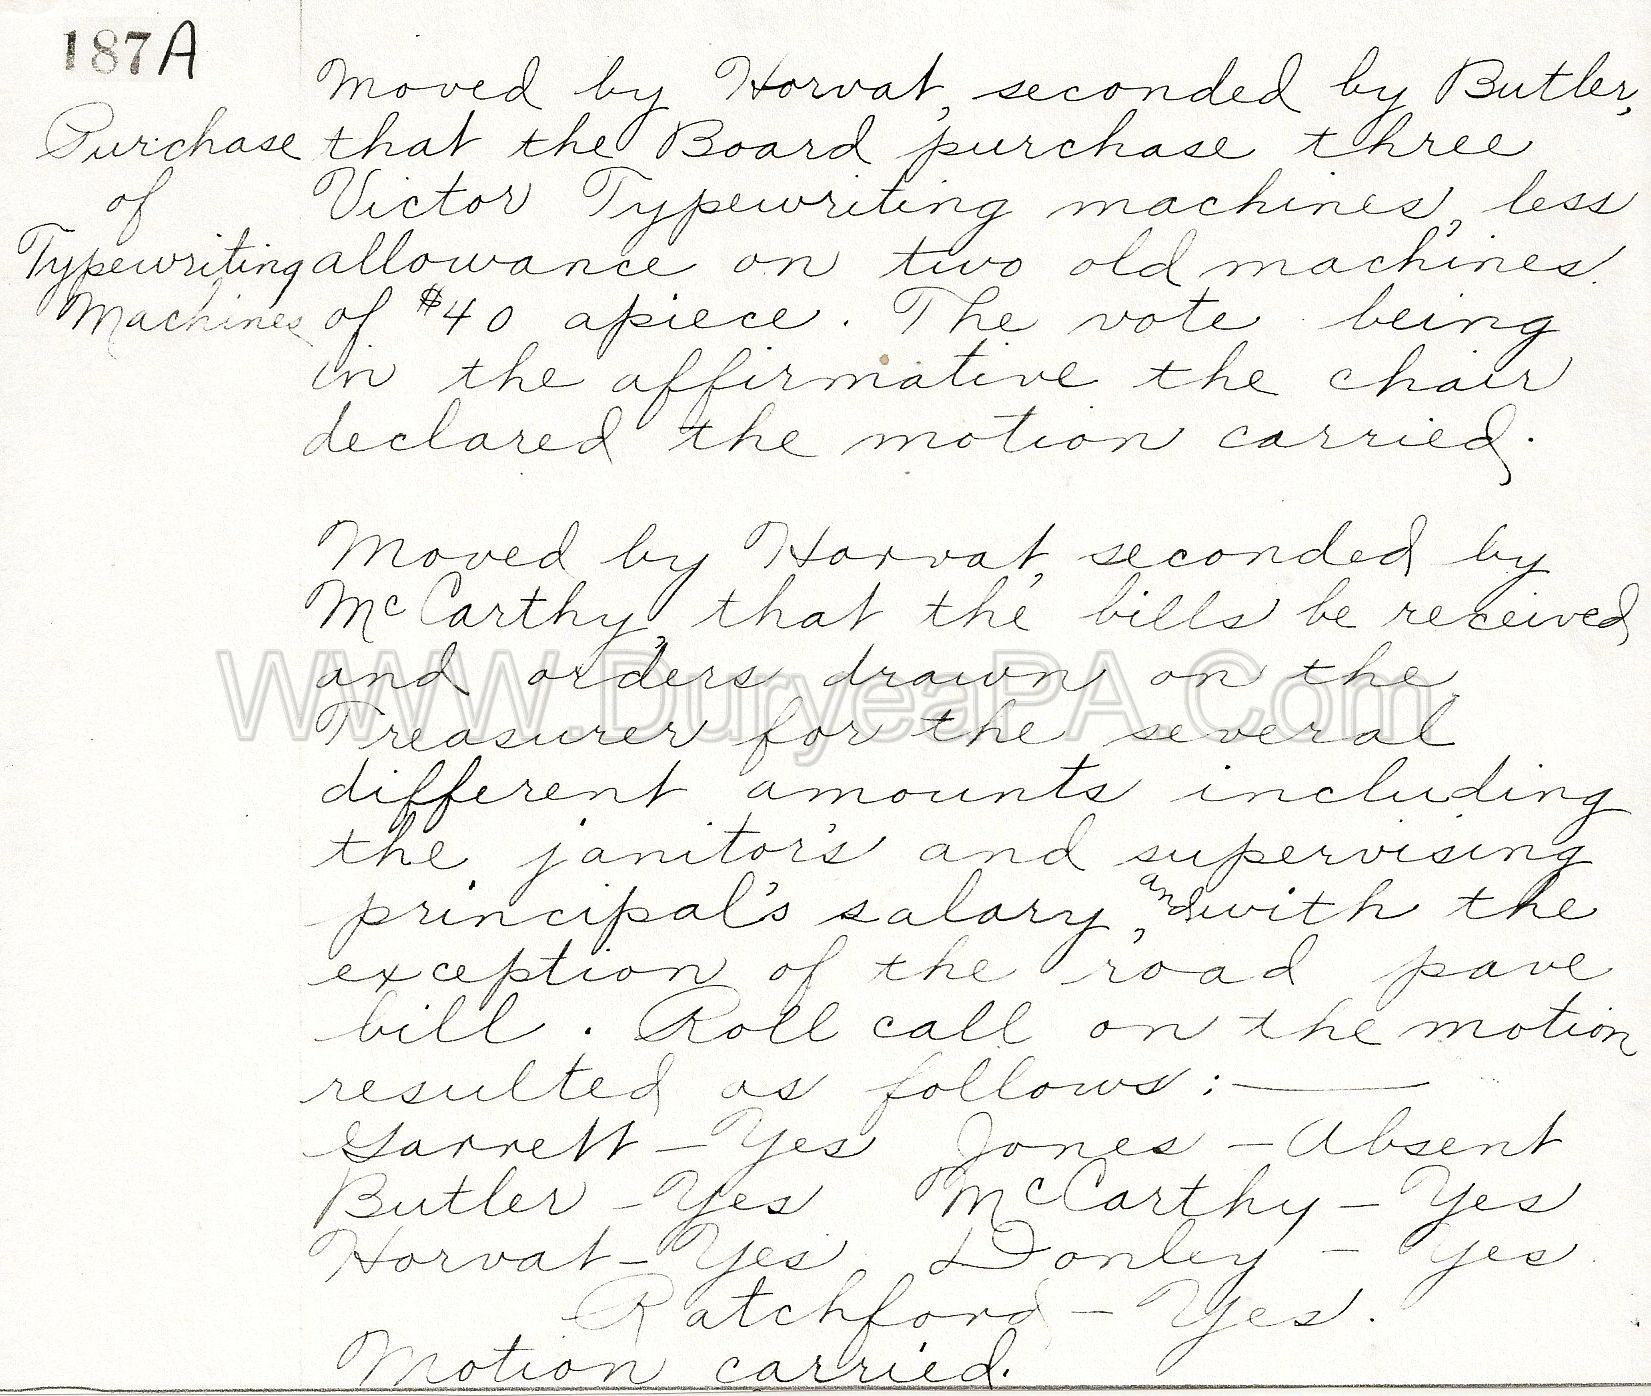 187A
Purchase
of
Typewriting
Machines
Moved by Horvat, seconded by Butler,
that the Board purchase three
Victor Typewriting machines, less
allowance on two old machines
of $40 apiece. The vote being
in the affirmative the chair
declared the motion carried.
Moved by Horvat, seconded by
McCarthy, that the bills be received
and orders drawn on the
Treasurer for the several
different amounts including
the janitor's and supervising
principal's salary, and with the
exception of the road pave
bill. Roll call on the motion
resulted as follows:—
Garrett – Yes Jones – Absent
Butler – Yes McCarthy – Yes
Horvat – Yes Donley – Yes
Ratchford – Yes.
Motion carried.
WWW.DuryeaPA.Com